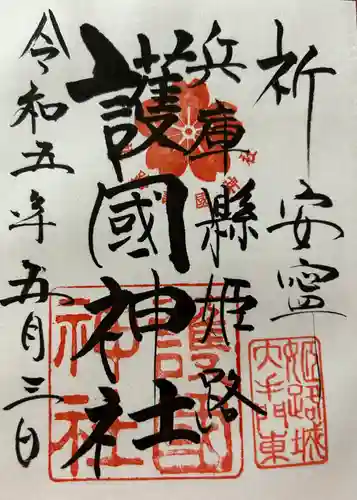 祈安寧
兵庫縣姫路
護國神社
令和五年五月三日
護国神社
姫路城大手門東